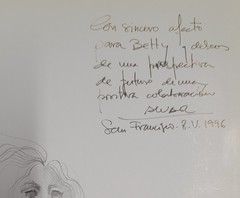 Con sincero afecto
para Betty y deseos
de una perspectiva
de futuro de una
positiva colaboración
San Francisco. 8. V. 1996